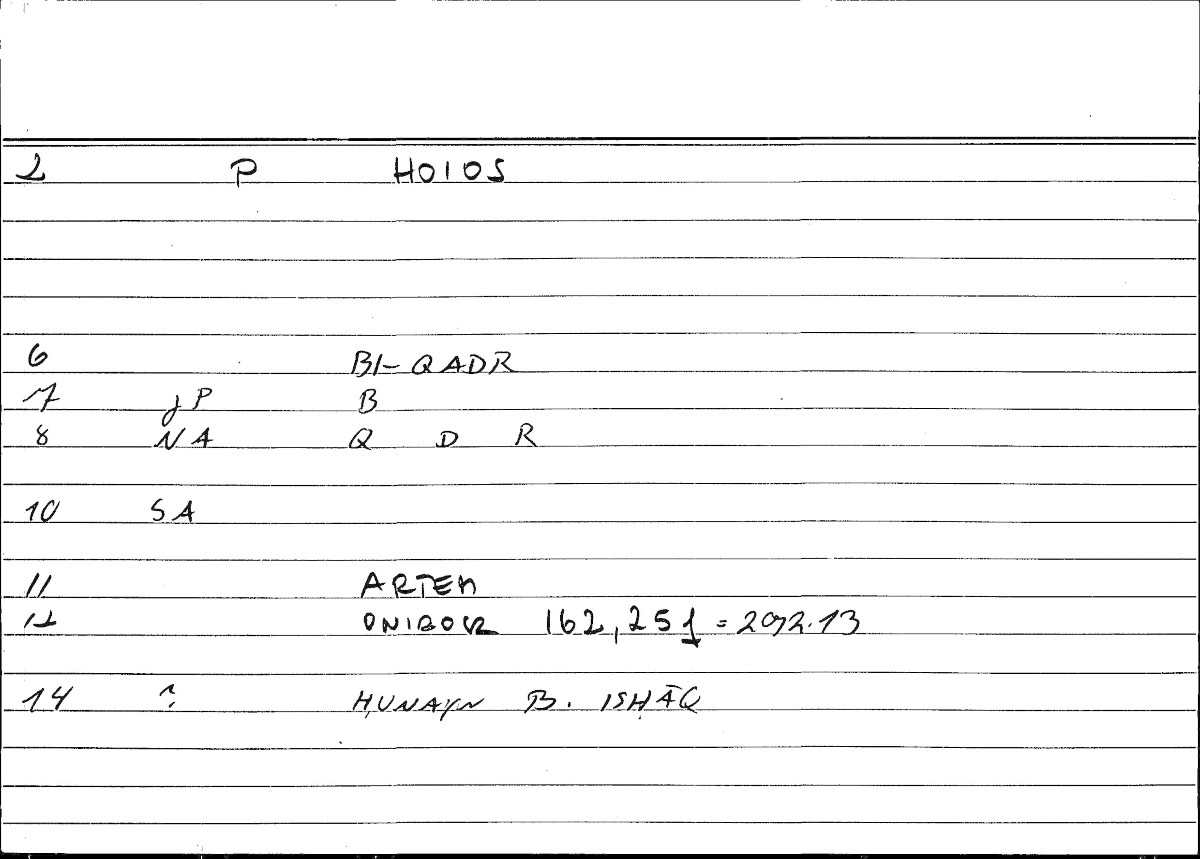 2 P HOIOS
6 BI-QADR
7 jP B
8 NA Q D R
10 SA
11 ARTEM
12 ONIROCR 162,251 = 292.13
14 ? ḤUNAYN B. ISḤĀQ